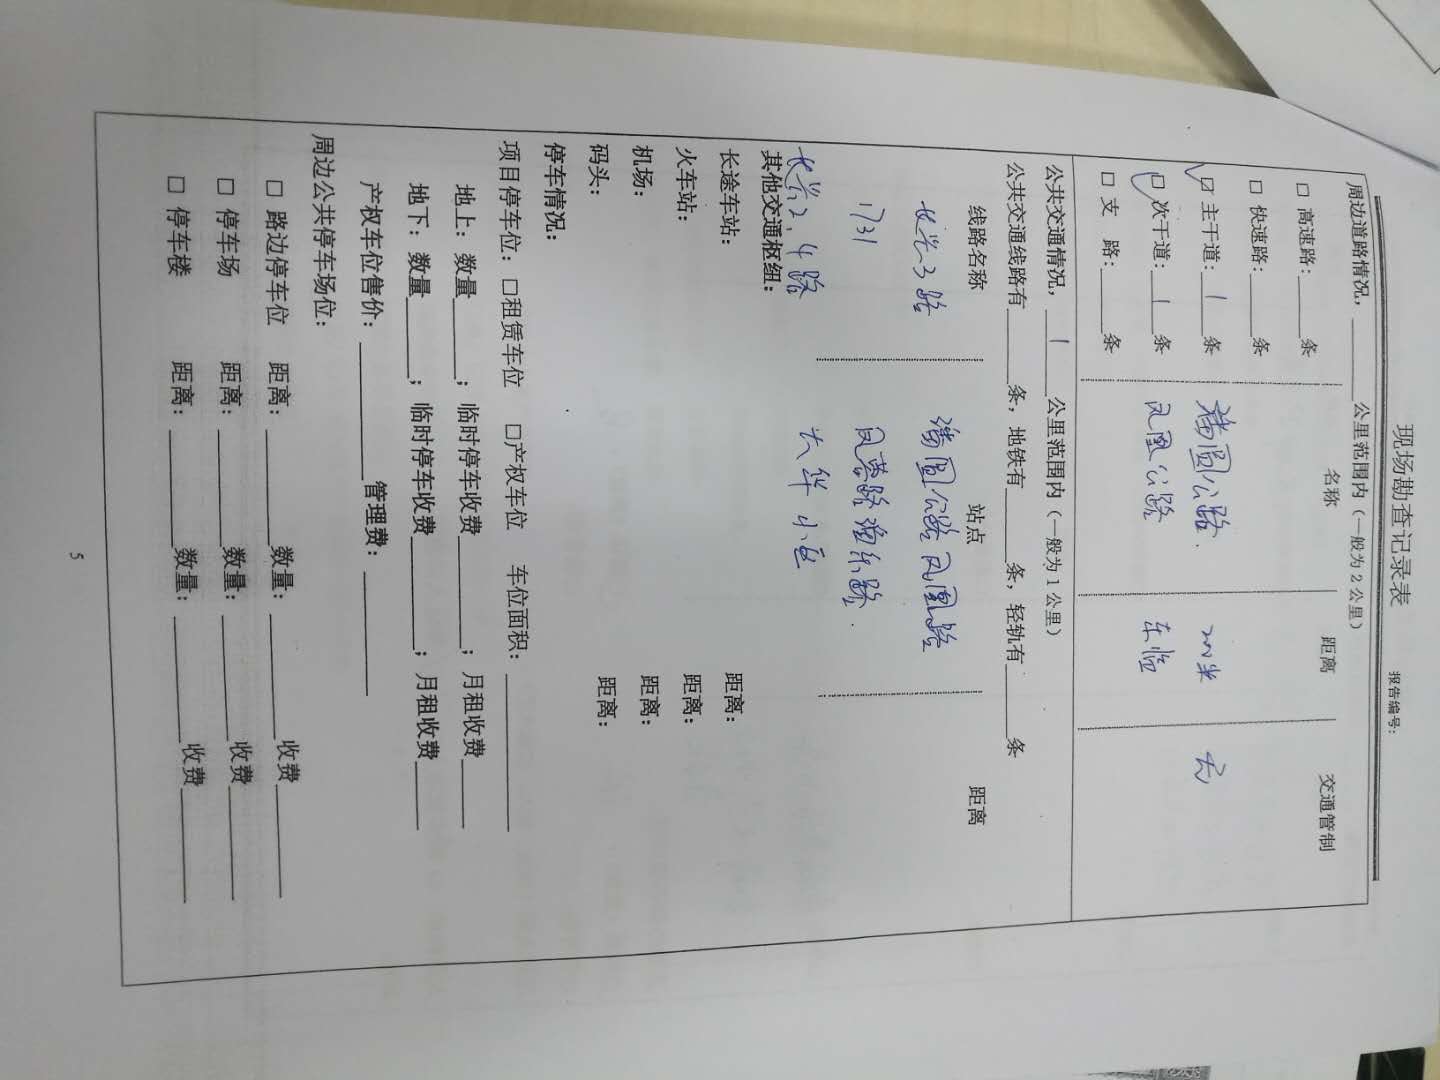 现场勘查记录表
报告编号:
周边道路情况，______公里范围内（一般为2公里）
名称 距离 交通管制
□ 高速路：____条
□ 快速路：____条
☑ 主干道：1条 潘圆公路 200米 无
☑ 次干道：1条 凤凰公路 东临
□ 支 路：____条
公共交通情况，1公里范围内（一般为1公里）
公共交通线路有______条，地铁有______条，轻轨有______条
线路名称 站点 距离
长兴3路 潘圆公路凤凰路
1731 凤蓉路
长兴2、4路 大华小区
其他交通枢纽：
长途车站： 距离：
火车站： 距离：
机场： 距离：
码头： 距离：
停车情况：
项目停车位：□租赁车位 □产权车位 车位面积：______
地上：数量______；临时停车收费______；月租收费______
地下：数量______；临时停车收费______；月租收费______
产权车位售价：______管理费：______
周边公共停车场位：
□ 路边停车位 距离：______数量：______收费______
□ 停车场 距离：______数量：______收费______
□ 停车楼 距离：______数量：______收费______
5